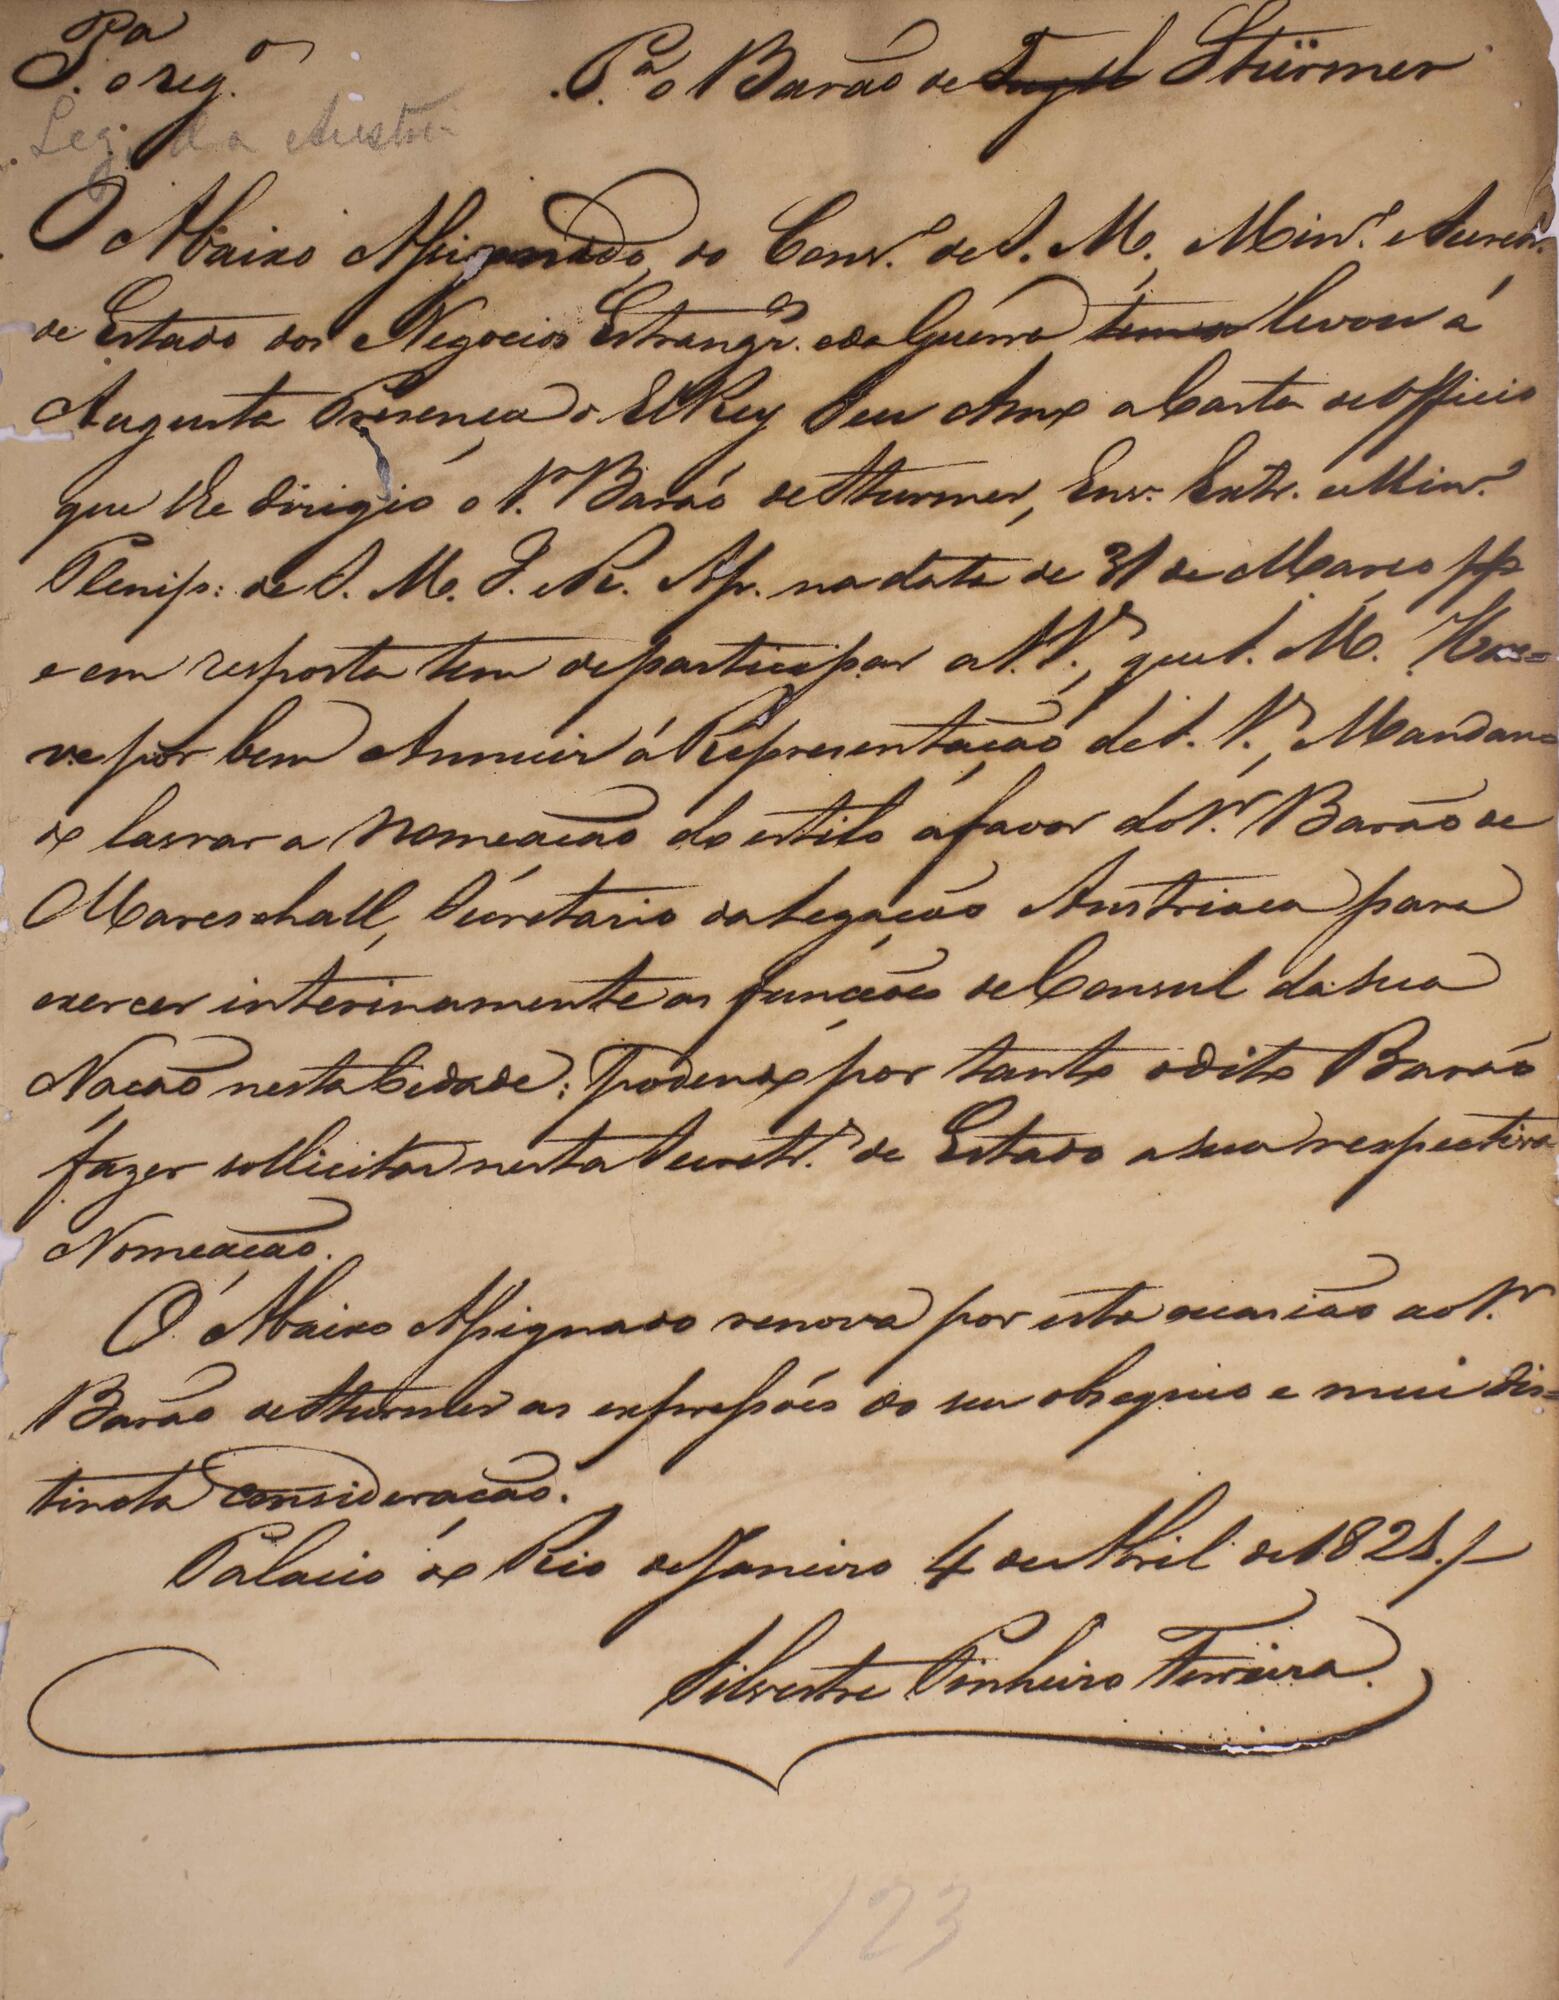 P.ª o reg.º
P.ª o Barão de Stürmer
Leg. da Austri
O Abaixo Assignado, do Cons.º de S. M., Min.º e Secret.
de Estado dos Negocios Estrang.ºs e da Guerra levou á
Augusta Presença d'ElRey Seu Amo a Carta de Officio
que lhe dirigio o S.r Barão de Sturmer, Env. Extr. e Min.º
Plenip: de S. M. I. R. Ap. na data de 31 de Março pp
e em resposta tem de participar a S. S.ª, que S. M. Hou=
ve por bem Annuir á Representação de S. S.ª, Mandan=
do lavrar a Nomeação do estilo a favor do S.r Barão de
Mareschall, Secretario da Legação Austriaca para
exercer interinamente as funcções de Consul da sua
Nação nesta Cidade: Podendo por tanto o dito Barão
fazer sollicitar nesta Secretr.ª de Estado a sua respectiva
Nomeação.
O Abaixo Assignado renova por esta occasião ao S.r
Barão de Sturmer as expressões do seu obsequio e mui dis=
tincta consideração.
Palacio do Rio de Janeiro 4 de Abril de 1821./
Silvestre Pinheiro Ferreira.
123